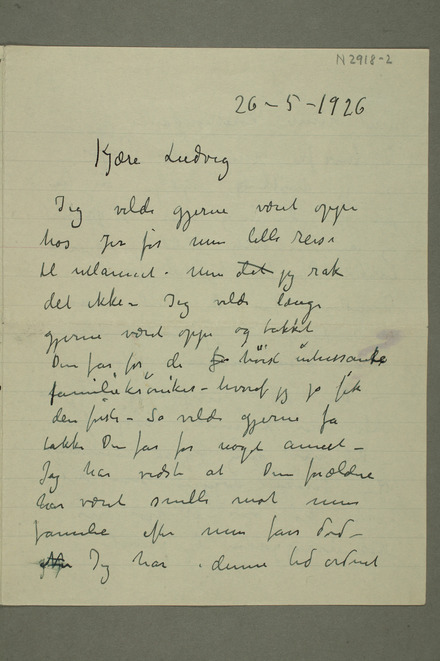 N 2918-2
26-5-1926
Kjære Ludvig
Jeg vilde gjerne været oppe
hos Jer før min lille reise
til utlandet. Men det jeg rak
det ikke - Jeg vilde længe
gjerne været oppe og takket
Din far for de høist interessante
familiekrøniker - hvoraf jeg jo fik
den første - Så vilde gjerne få
takke Din far for noget annet -
Jeg har vidst at Dine forældre
har været snille mot min
familie efter min fars død -
Jeg har i denne tid ordnet